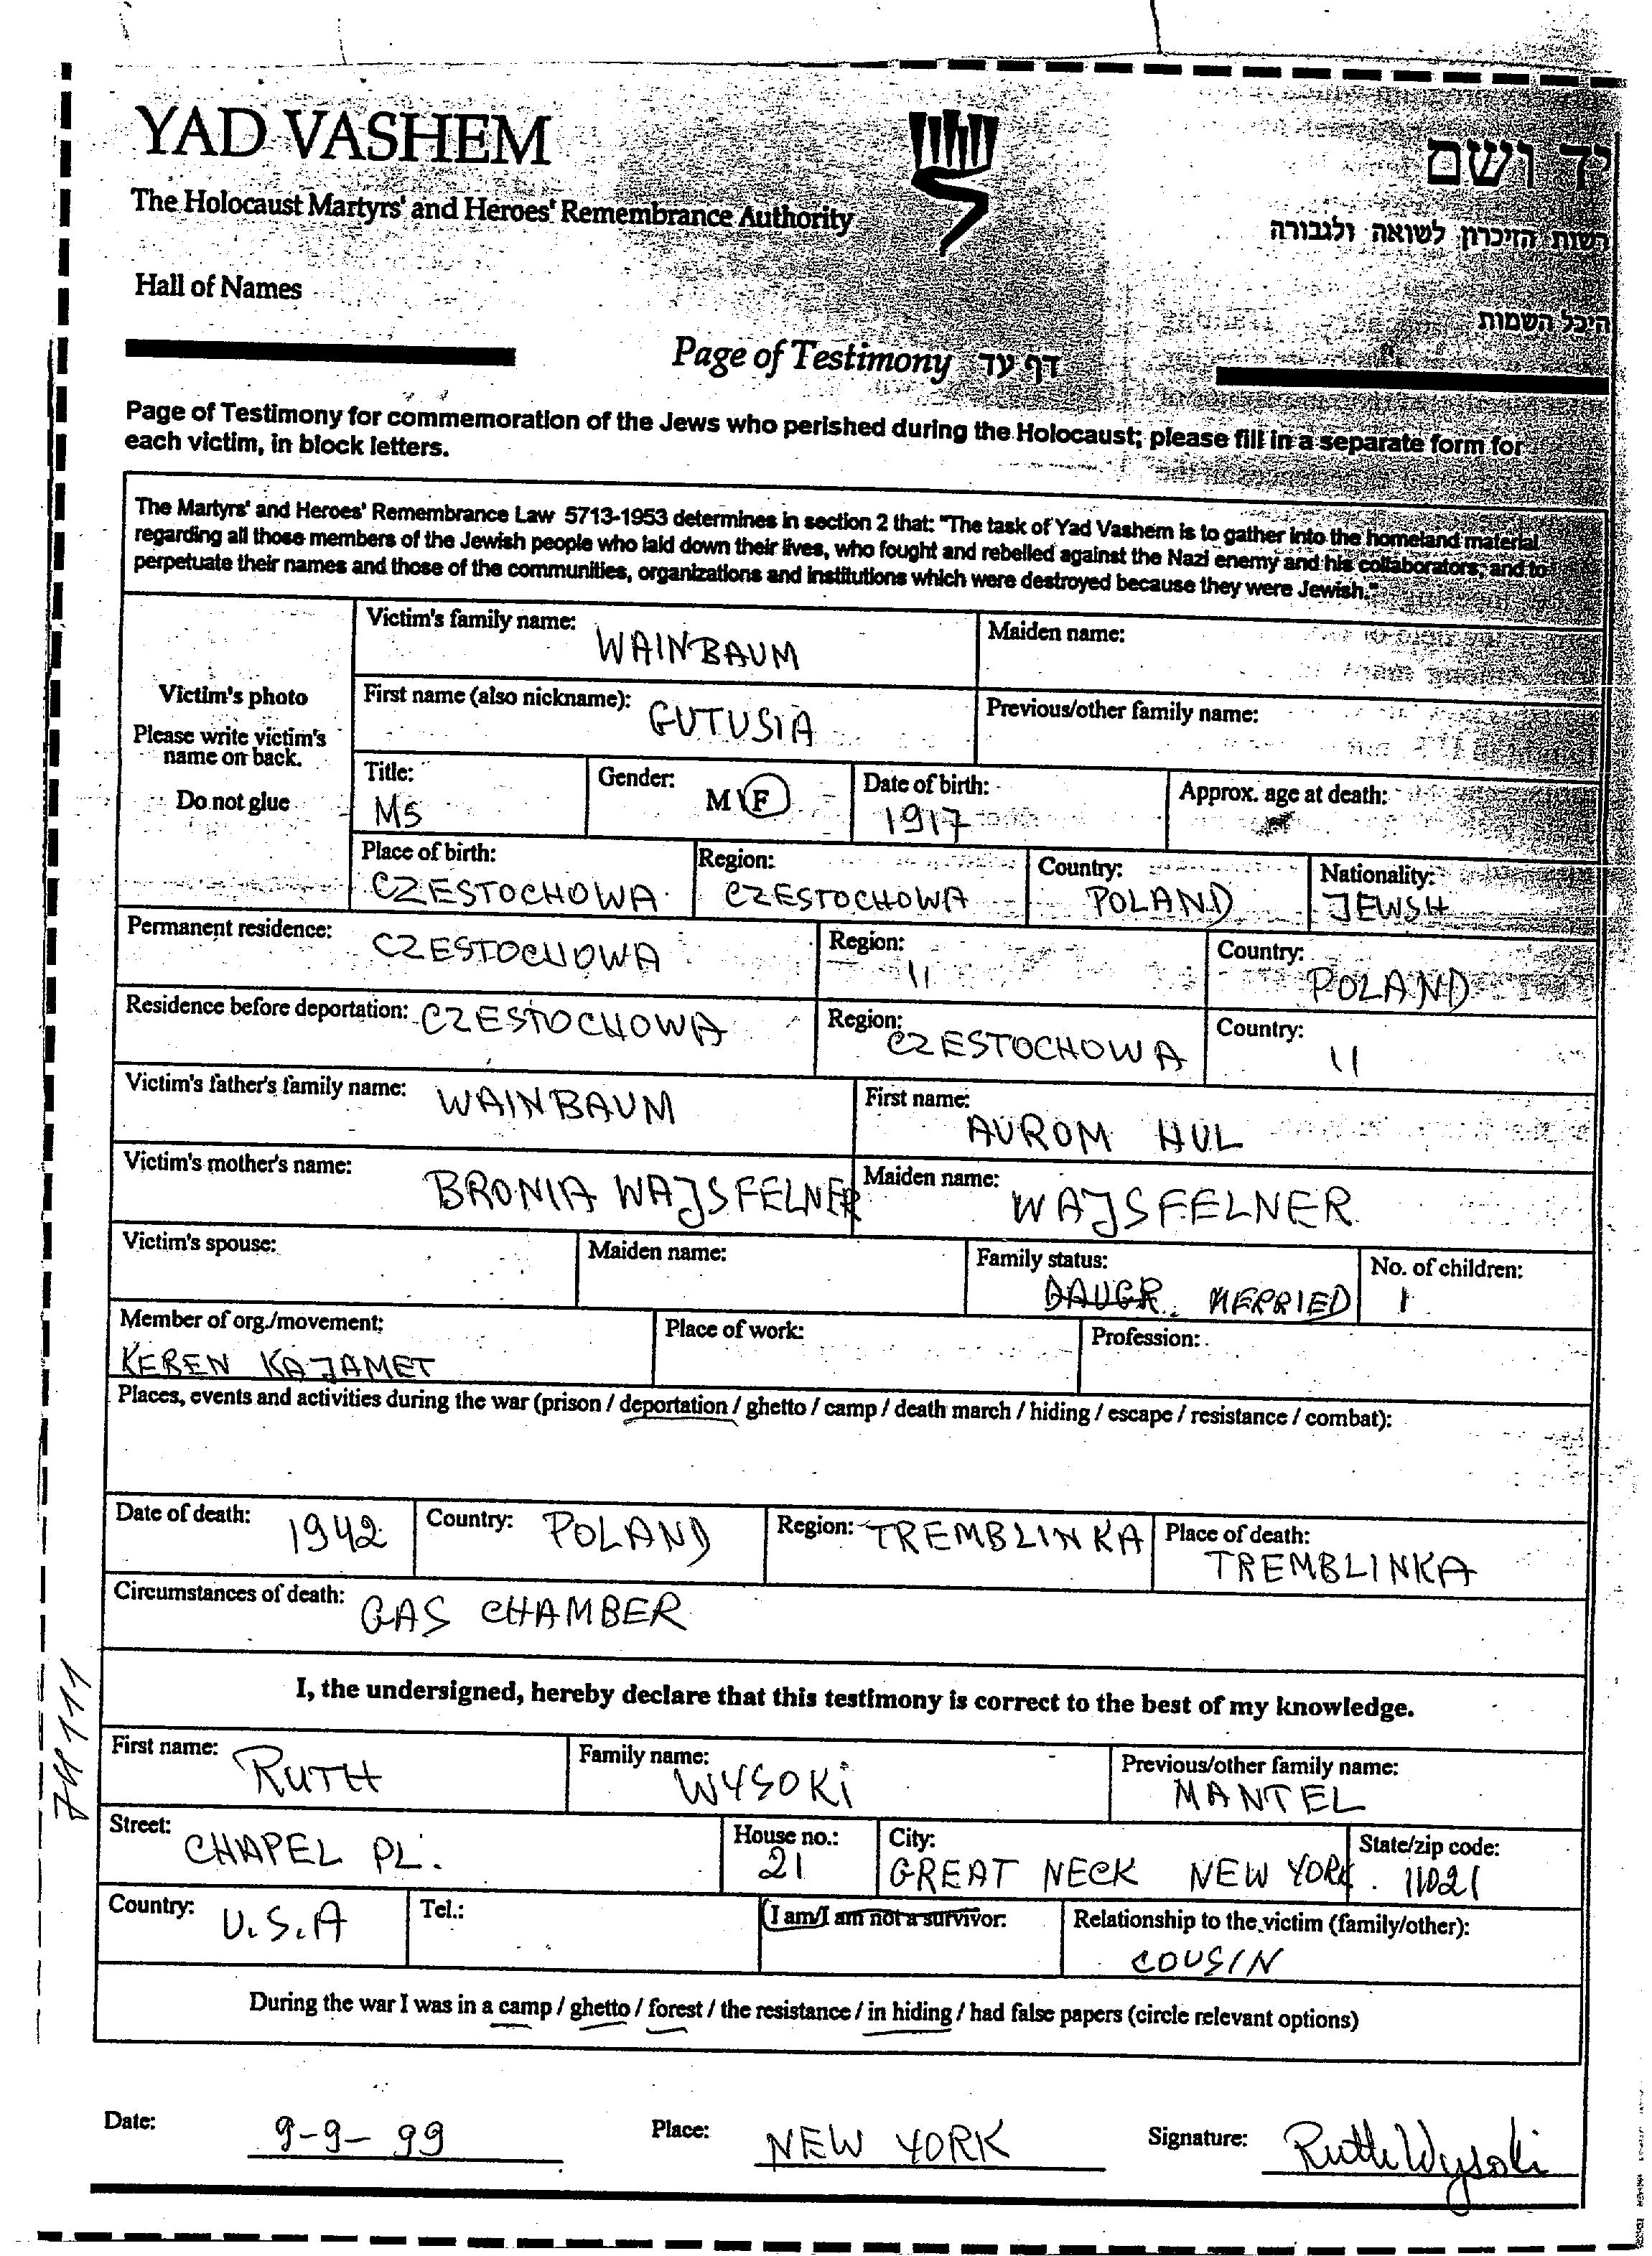 YAD VASHEM
יד ושם
The Holocaust Martyrs' and Heroes' Remembrance Authority
רשות הזיכרון לשואה ולגבורה
Hall of Names
היכל השמות
Page of Testimony דף עד
Page of Testimony for commemoration of the Jews who perished during the Holocaust; please fill in a separate form for
each victim, in block letters.
The Martyrs' and Heroes' Remembrance Law 5713-1953 determines in section 2 that: "The task of Yad Vashem is to gather into the homeland material
regarding all those members of the Jewish people who laid down their lives, who fought and rebelled against the Nazi enemy and his collaborators, and to
perpetuate their names and those of the communities, organizations and institutions which were destroyed because they were Jewish."
Victim's photo
Please write victim's
name on back.
Do not glue
Victim's family name: WAINBAUM Maiden name:
First name (also nickname): GUTUSIA Previous/other family name:
Title: MS Gender: M\F Date of birth: 1917 Approx. age at death:
Place of birth: CZESTOCHOWA Region: CZESTOCHOWA Country: POLAND Nationality: JEWSH
Permanent residence: CZESTOCHOWA Region: 11 Country: POLAND
Residence before deportation: CZESTOCHOWA Region: CZESTOCHOWA Country: 11
Victim's father's family name: WAINBAUM First name: AUROM HUL
Victim's mother's name: BRONIA WAJSFELNER Maiden name: WAJSFELNER
Victim's spouse: Maiden name: Family status: DAUGR. MERRIED No. of children: 1
Member of org./movement: KEREN KAJAMET Place of work: Profession:
Places, events and activities during the war (prison / deportation / ghetto / camp / death march / hiding / escape / resistance / combat):
Date of death: 1942 Country: POLAND Region: TREMBLINKA Place of death: TREMBLINKA
Circumstances of death: GAS CHAMBER
I, the undersigned, hereby declare that this testimony is correct to the best of my knowledge.
First name: RUTH Family name: WYSOKi Previous/other family name: MANTEL
Street: CHAPEL PL. House no.: 21 City: GREAT NECK NEW YORK State/zip code: 11021
Country: U.S.A Tel.: I am/I am not a survivor: Relationship to the victim (family/other): COUSIN
During the war I was in a camp / ghetto / forest / the resistance / in hiding / had false papers (circle relevant options)
Date: 9-9-99 Place: NEW YORK Signature: Ruth Wysoki